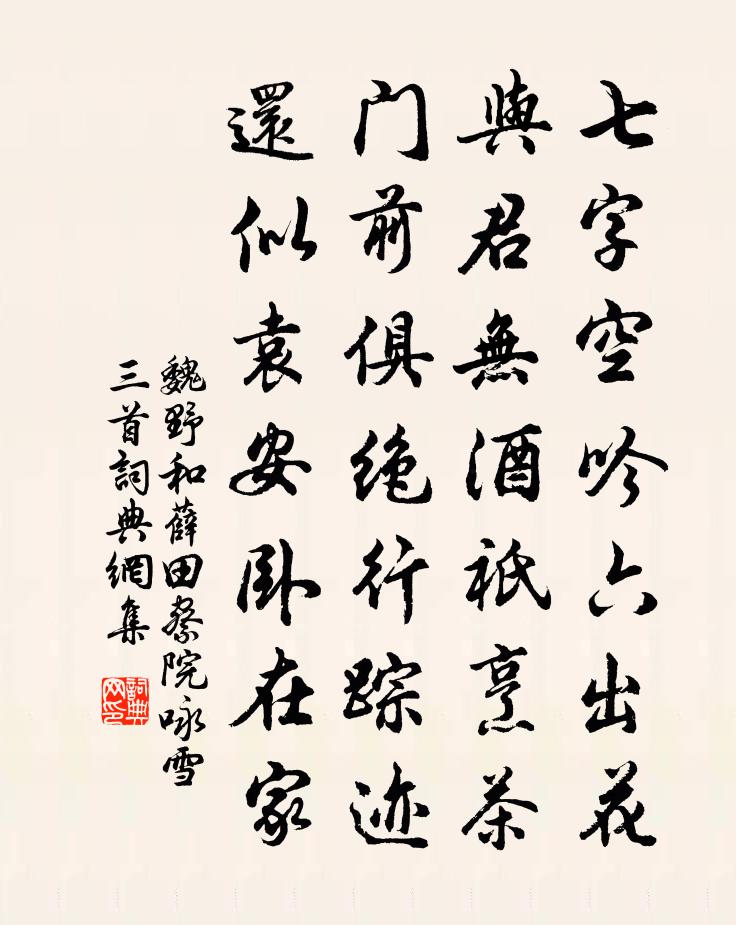 七字空吟六出花
與君無酒祇烹茶
門前俱绝行踪迹
還似袁安卧在家
魏野和薛田察院咏雪
三首詞典網集
詞典网印